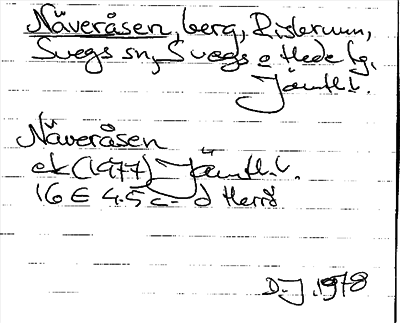 Näveråsen, berg, Risbrunn,
Svegs sn, Svegs o Hede tg,
Jämtl.l.
Näveråsen
ek (1977) Jämtl.l.
16 E 4-5 c-d Herrö
D.J. 1978